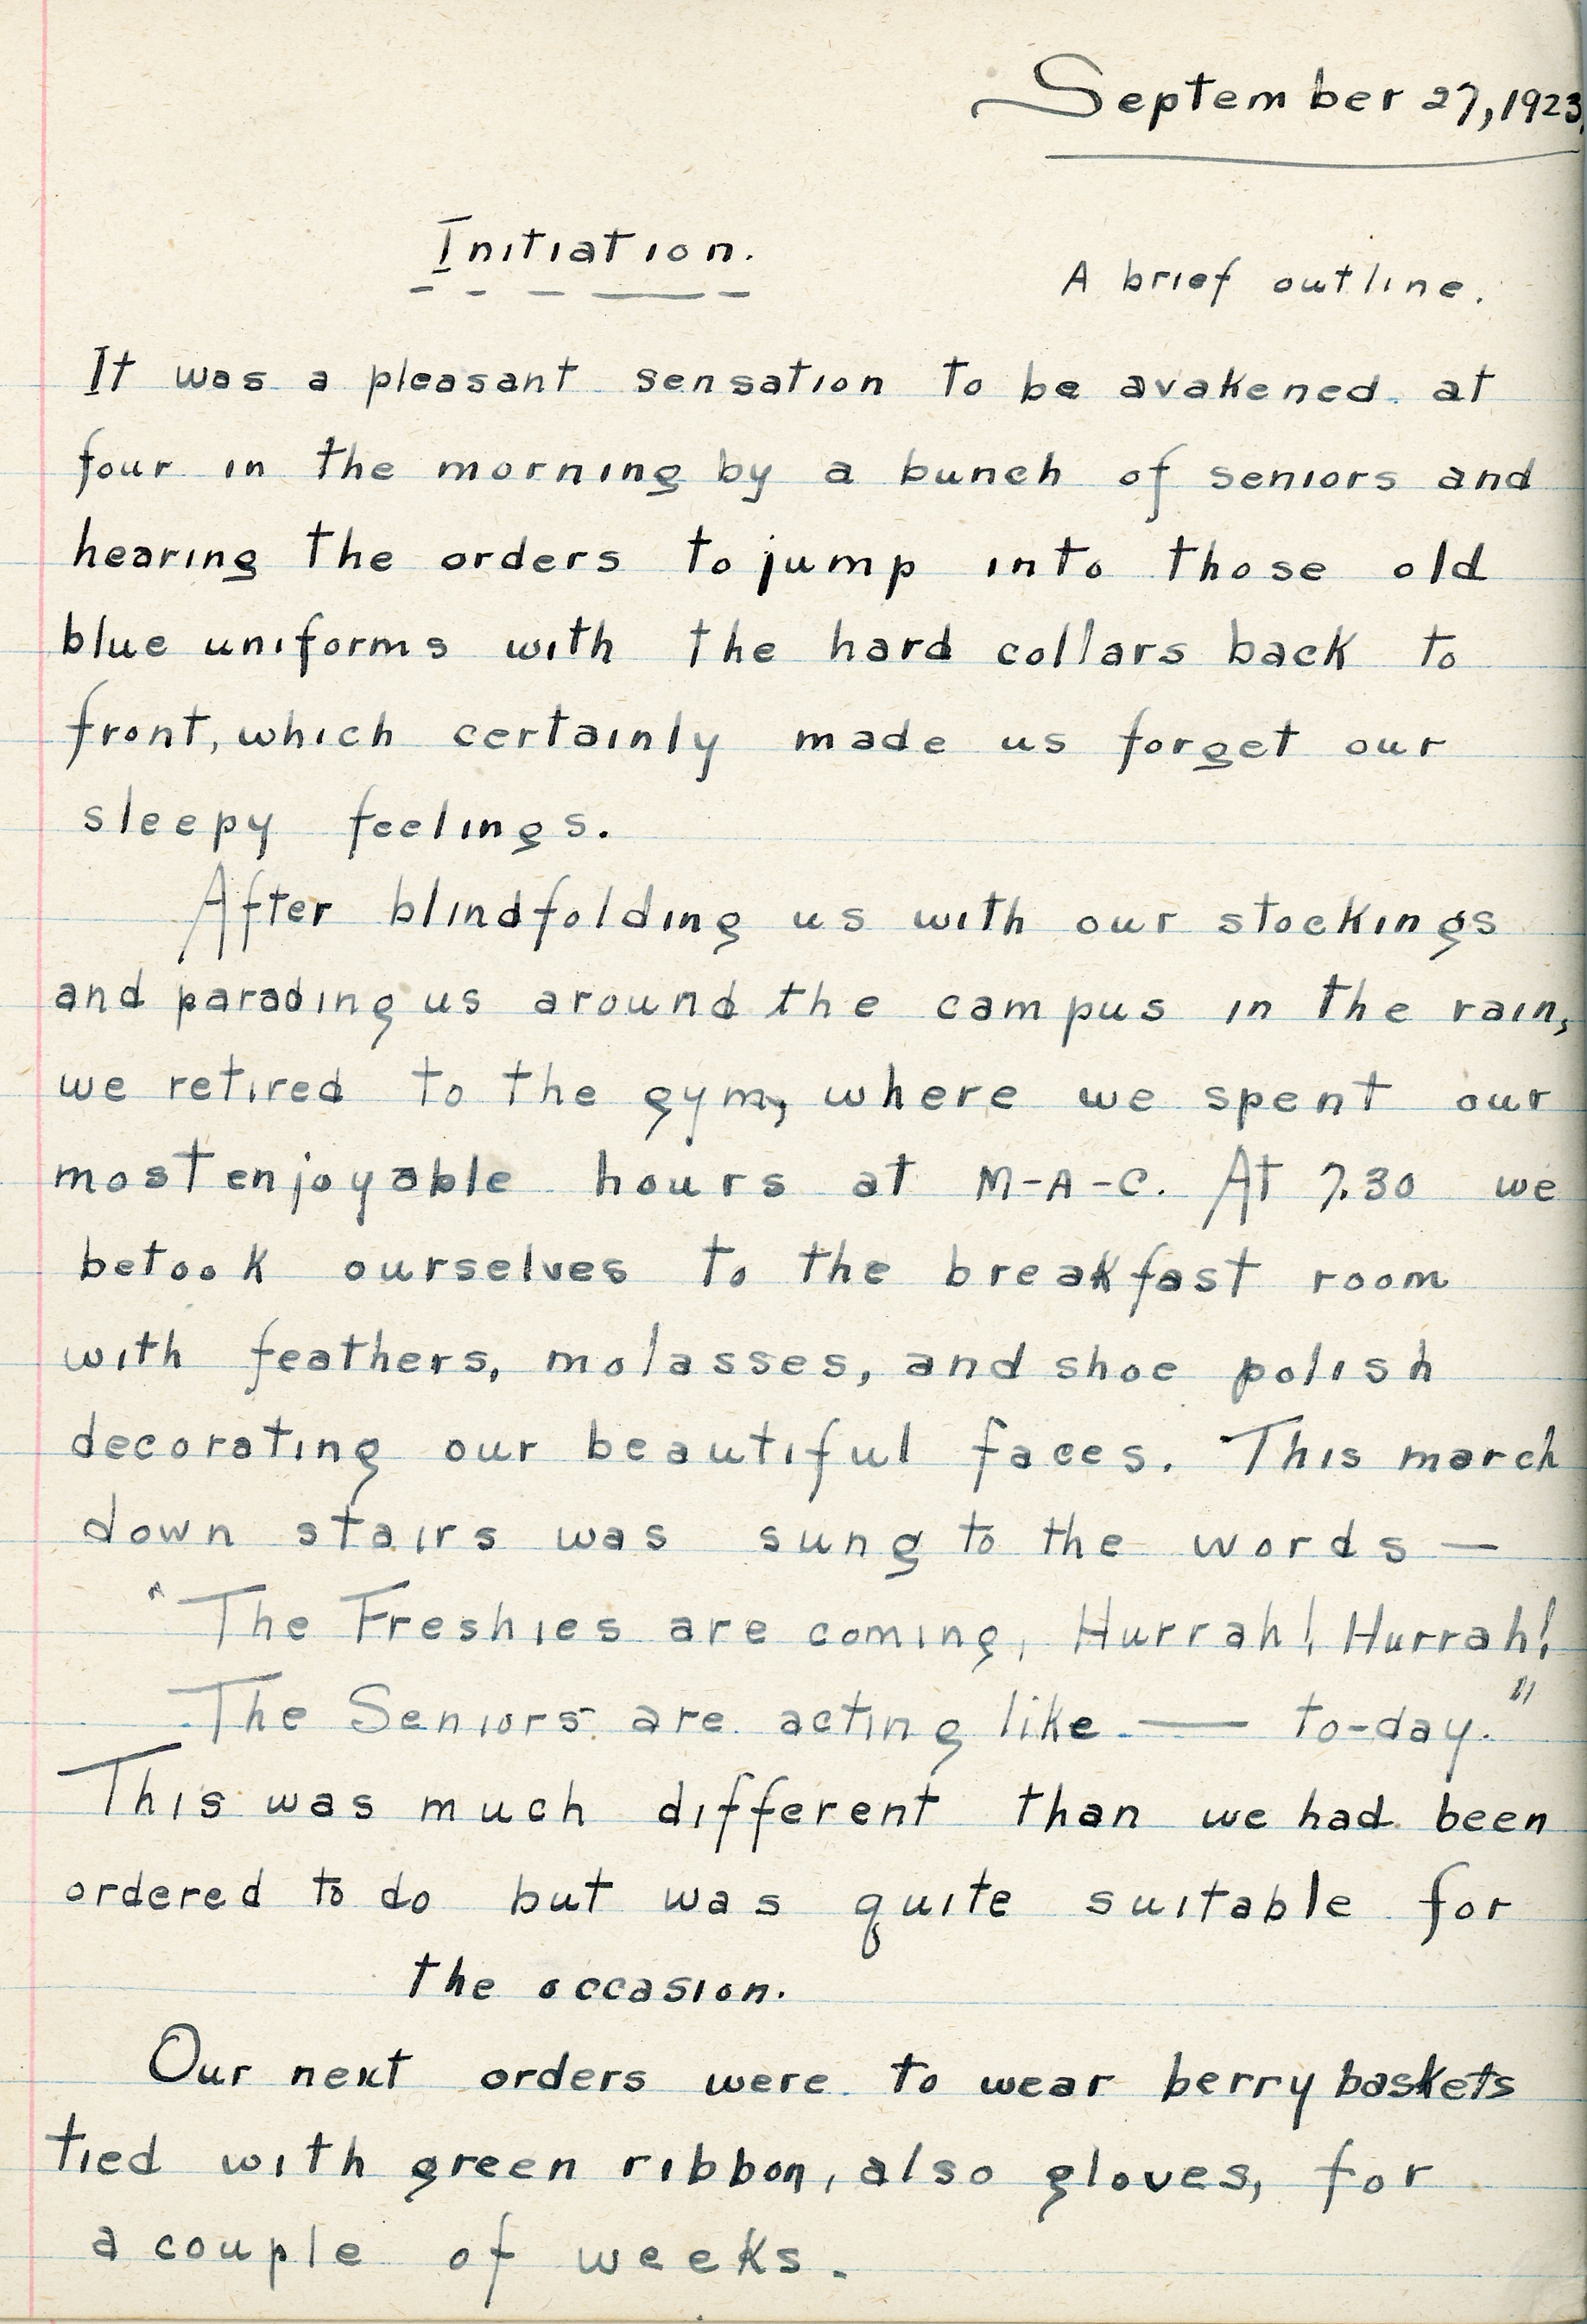 September 27, 1923.
Initiation.
A brief outline.
It was a pleasant sensation to be avakened at
four in the morning by a bunch of seniors and
hearing the orders to jump into those old
blue uniforms with the hard collars back to
front, which certainly made us forget our
sleepy feelings.
After blindfolding us with our stockings
and parading us around the campus in the rain,
we retired to the gym, where we spent our
most enjoyable hours at M-A-C. At 7.30 we
betook ourselves to the breakfast room
with feathers, molasses, and shoe polish
decorating our beautiful faces. This march
down stairs was sung to the words —
"The Freshies are coming, Hurrah! Hurrah!
The Seniors are acting like —— to-day."
This was much different than we had been
ordered to do but was quite suitable for
the occasion.
Our next orders were to wear berry baskets
tied with green ribbon, also gloves, for
a couple of weeks.